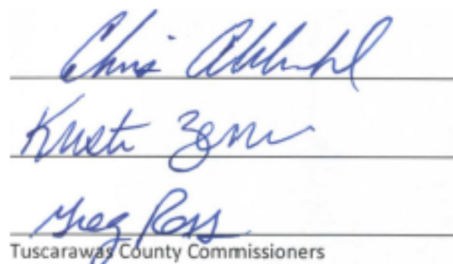 Chris Abbuhl
Kristin Zemis
Greg Ress
Tuscarawas County Commissioners